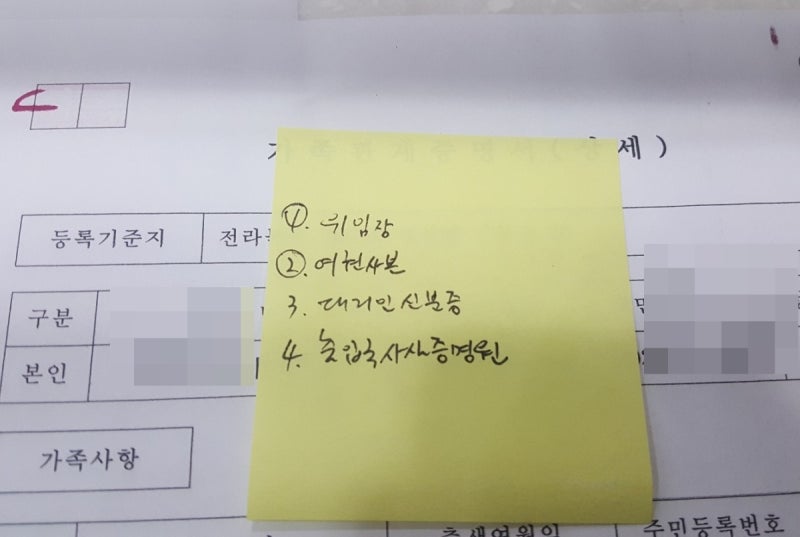 가 족 관 계 증 명 서 ( 상 세 )
등록기준지 전라
①. 위임장
②. 여권사본
3. 대리인 신분증
4. 출입국사실증명원
구분
본인
가족사항
출생연월일 주민등록번호